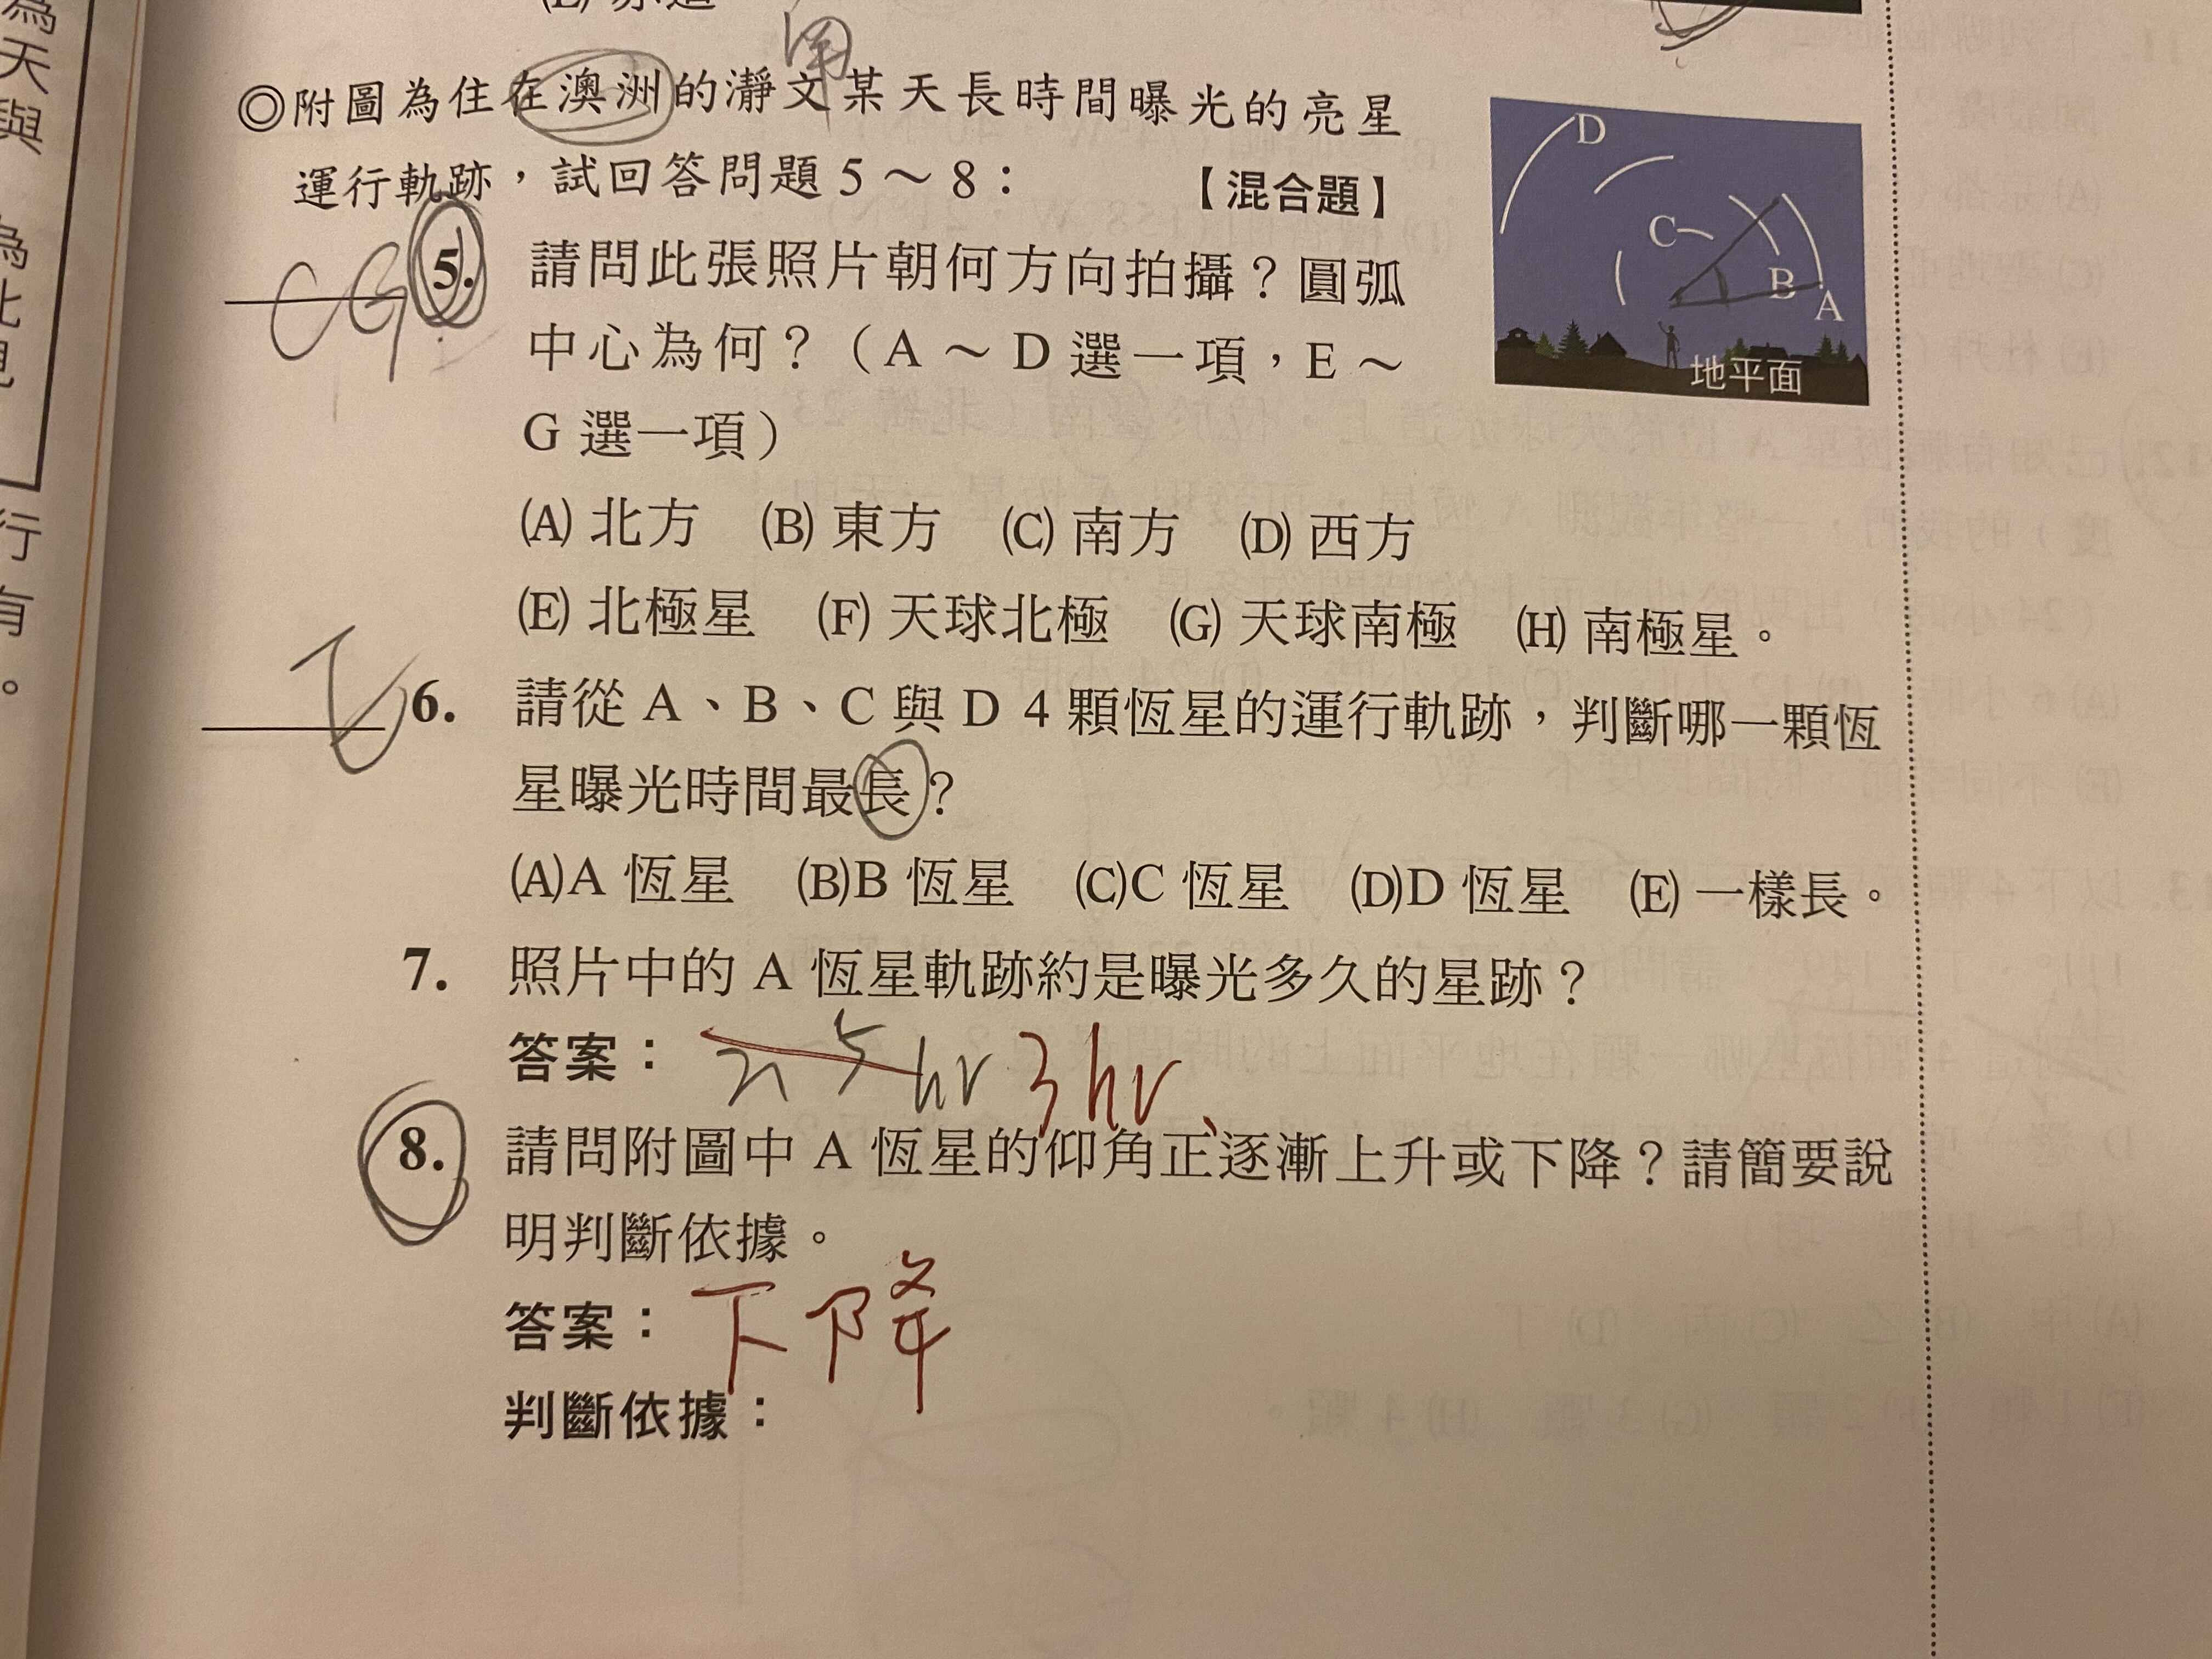 為天與
◎附圖為住在澳洲的瀞文某天長時間曝光的亮星
運行軌跡，試回答問題5～8：【混合題】
D
C
B
A
地平面
CG
5. 請問此張照片朝何方向拍攝？圓弧
中心為何？（A～D選一項，E～
G選一項）
(A)北方 (B)東方 (C)南方 (D)西方
(E)北極星 (F)天球北極 (G)天球南極 (H)南極星。
6. 請從A、B、C與D 4顆恆星的運行軌跡，判斷哪一顆恆
星曝光時間最長？
(A)A恆星 (B)B恆星 (C)C恆星 (D)D恆星 (E)一樣長。
7. 照片中的A恆星軌跡約是曝光多久的星跡？
答案： hr 3hr
8. 請問附圖中A恆星的仰角正逐漸上升或下降？請簡要說
明判斷依據。
答案：下降
判斷依據：